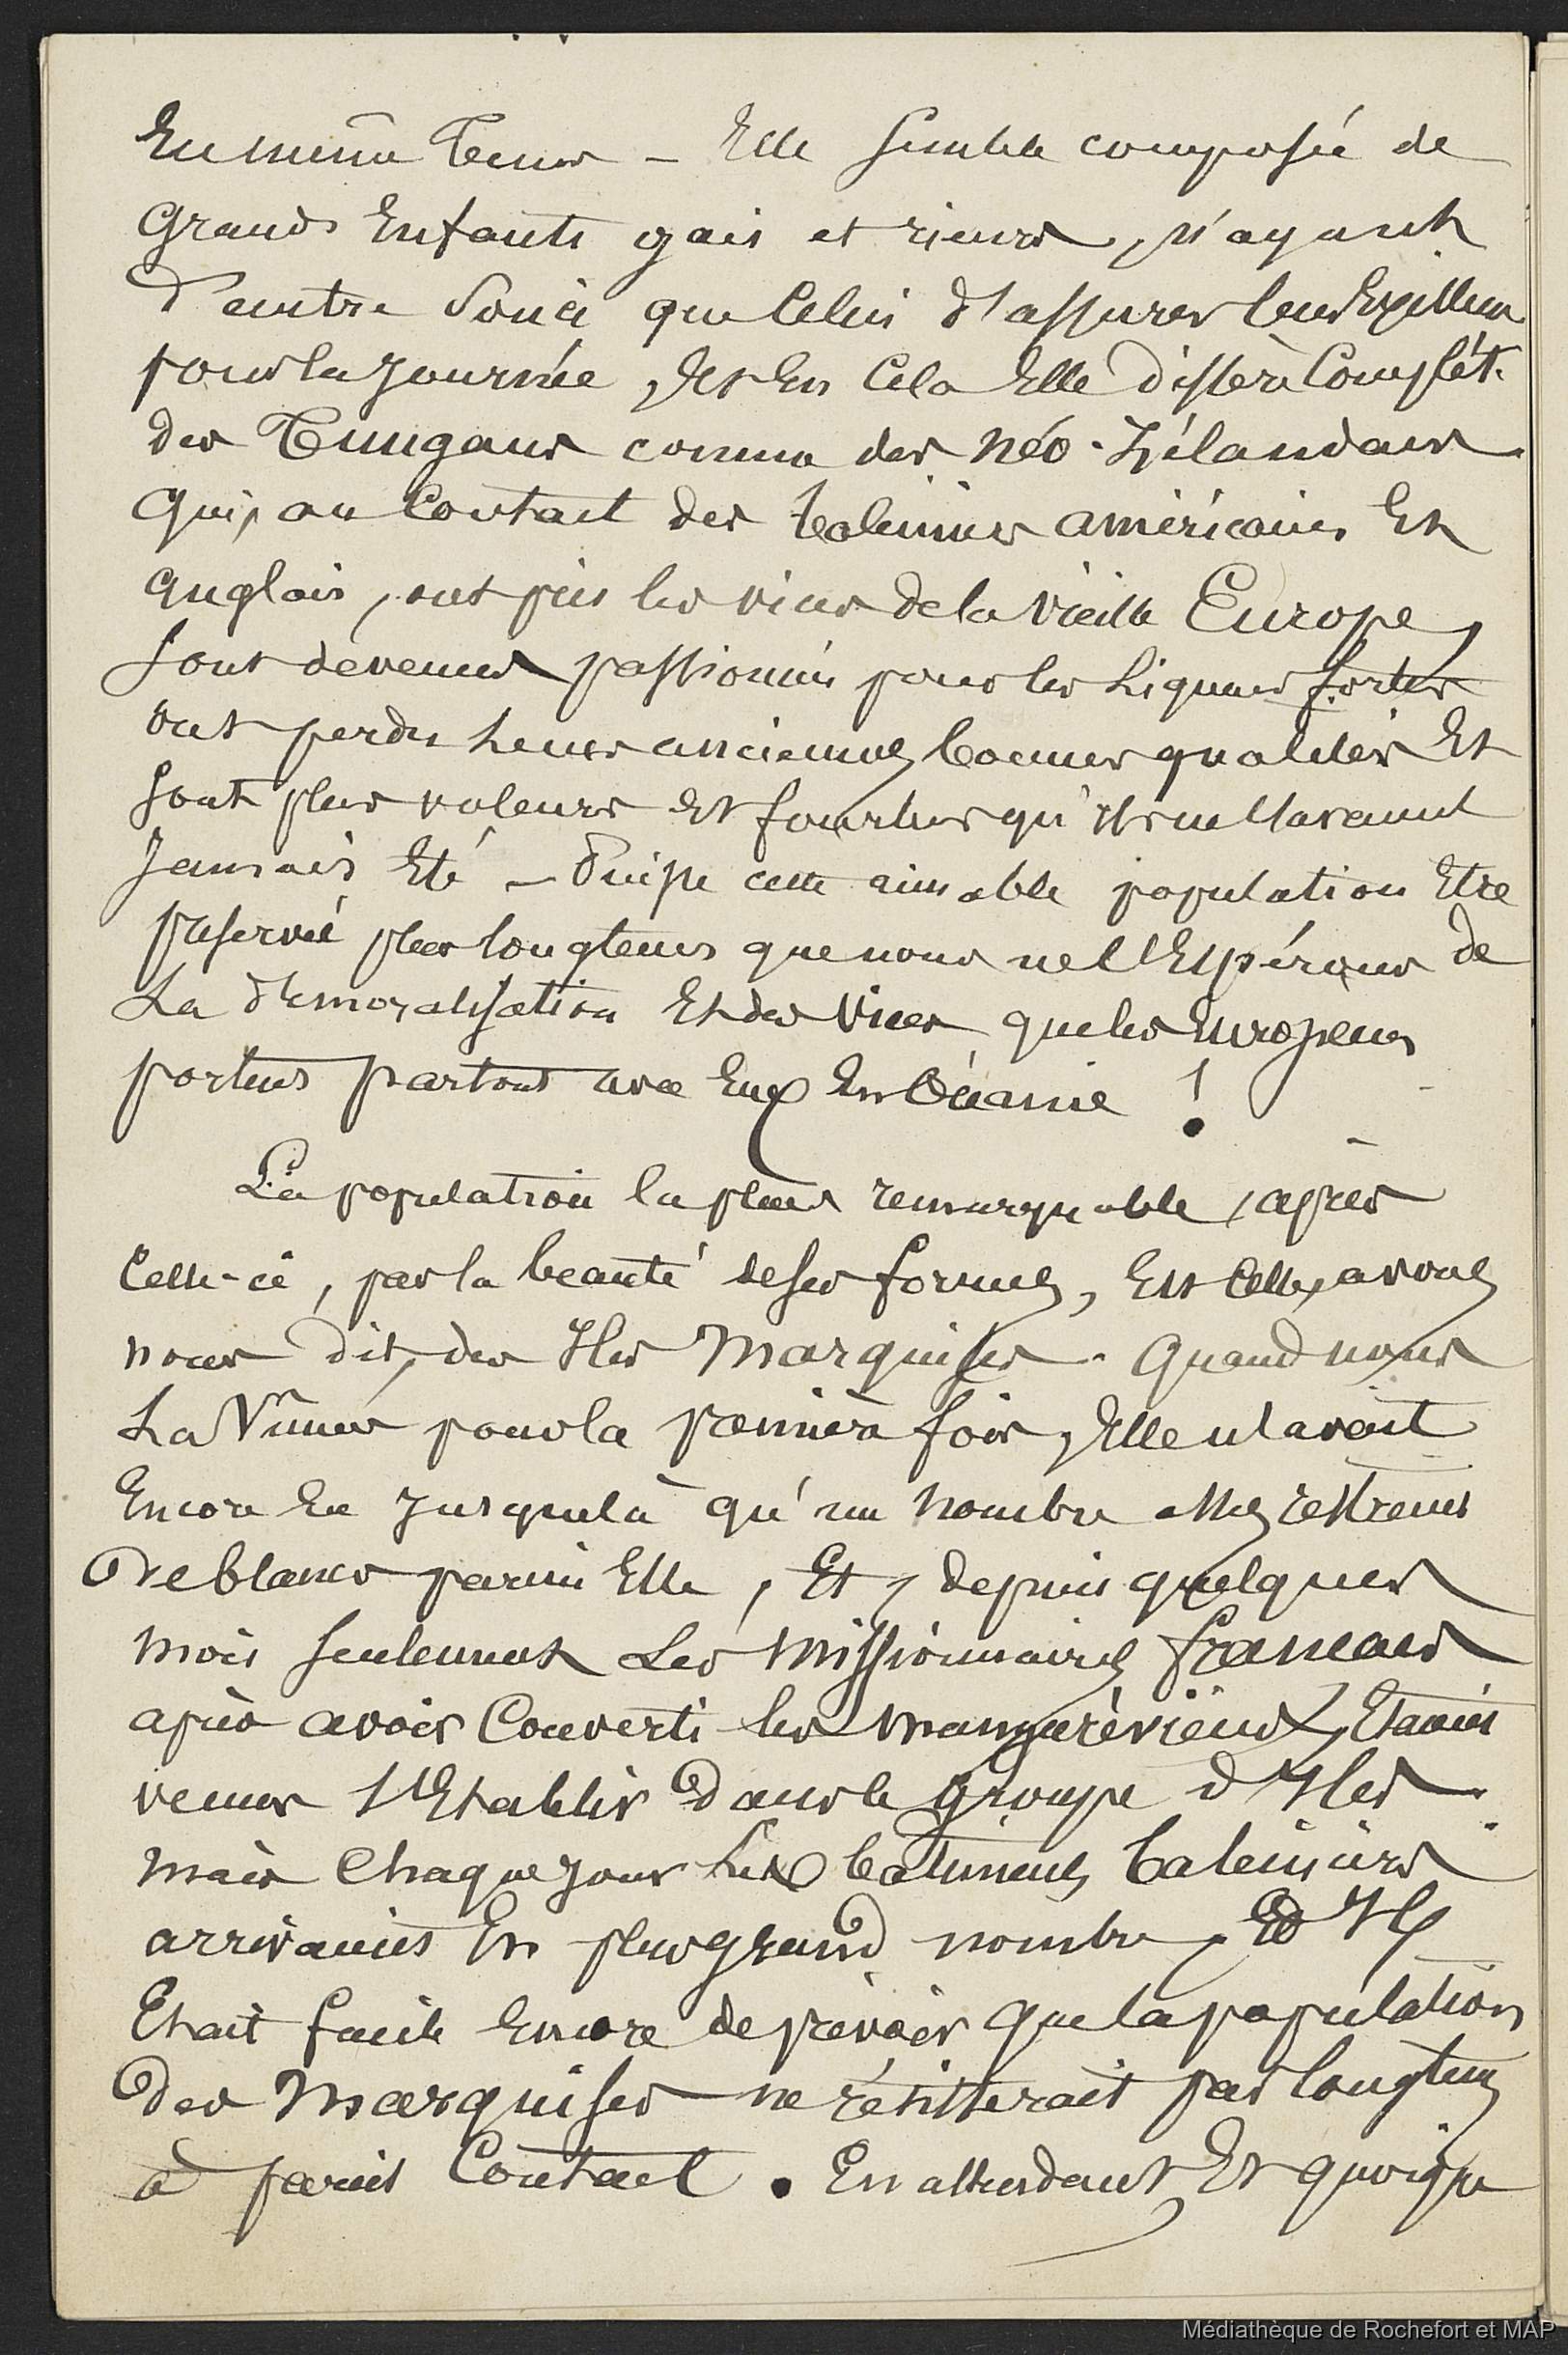 En même tems – Elle semble composée de
Grands Enfants gais et rieurs, n'ayant
d'autre Souci que Celui d'assurer leur
pour la journée, Et En Cela Elle diffère Complét.
des Tungans comme des Néo-Zélandais.
Qui, au Contact des baleiniers américains Et
Anglais, ont pris les vices de la vieille Europe,
Sont devenus passionnés pour les Liqueurs fortes
ont perdu Leurs anciennes bonnes qualités Et
sont plus voleurs Et fourbes qu'ils ne l'avaient
Jamais Eté – Puisse cette aimable population Etre
préservée plus longtems que nous ne l'Espérons de
La démoralisation Et des Vices que les Européens
portent partout avec Eux En Océanie !
La population la plus remarquable, après
Celle-ci, par la beauté de ses formes, Est Celle, avons
nous dit, des Iles Marquises. Quand nous
La Vîmes pour la première fois, Elle n'avait
Encore Eu Jusque là qu'un Nombre assez restreint
De blancs parmi Elle, Et, depuis quelques
Mois seulement Les Missionnaires français
après avoir Converti les Mangaréviens, Etaient
venus s'Etablir Dans le groupe d'Iles.
Mais Chaque jour Les batiments baleiniers
arrivaient En plus grand nombre, Et Il
Etait facile Encore de prévoir que la population
Des Marquises ne résisterait pas longtems
à pareil Contact. En attendant, Et quoique
Médiathèque de Rochefort et MAP